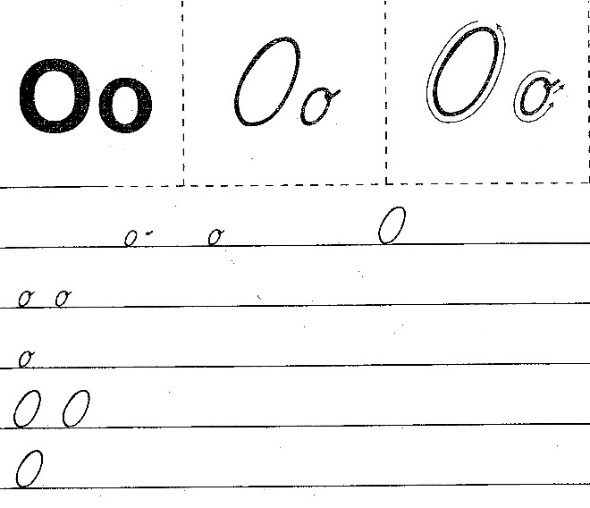 Oo Oo Oo
o o O
o o
o
O O
O